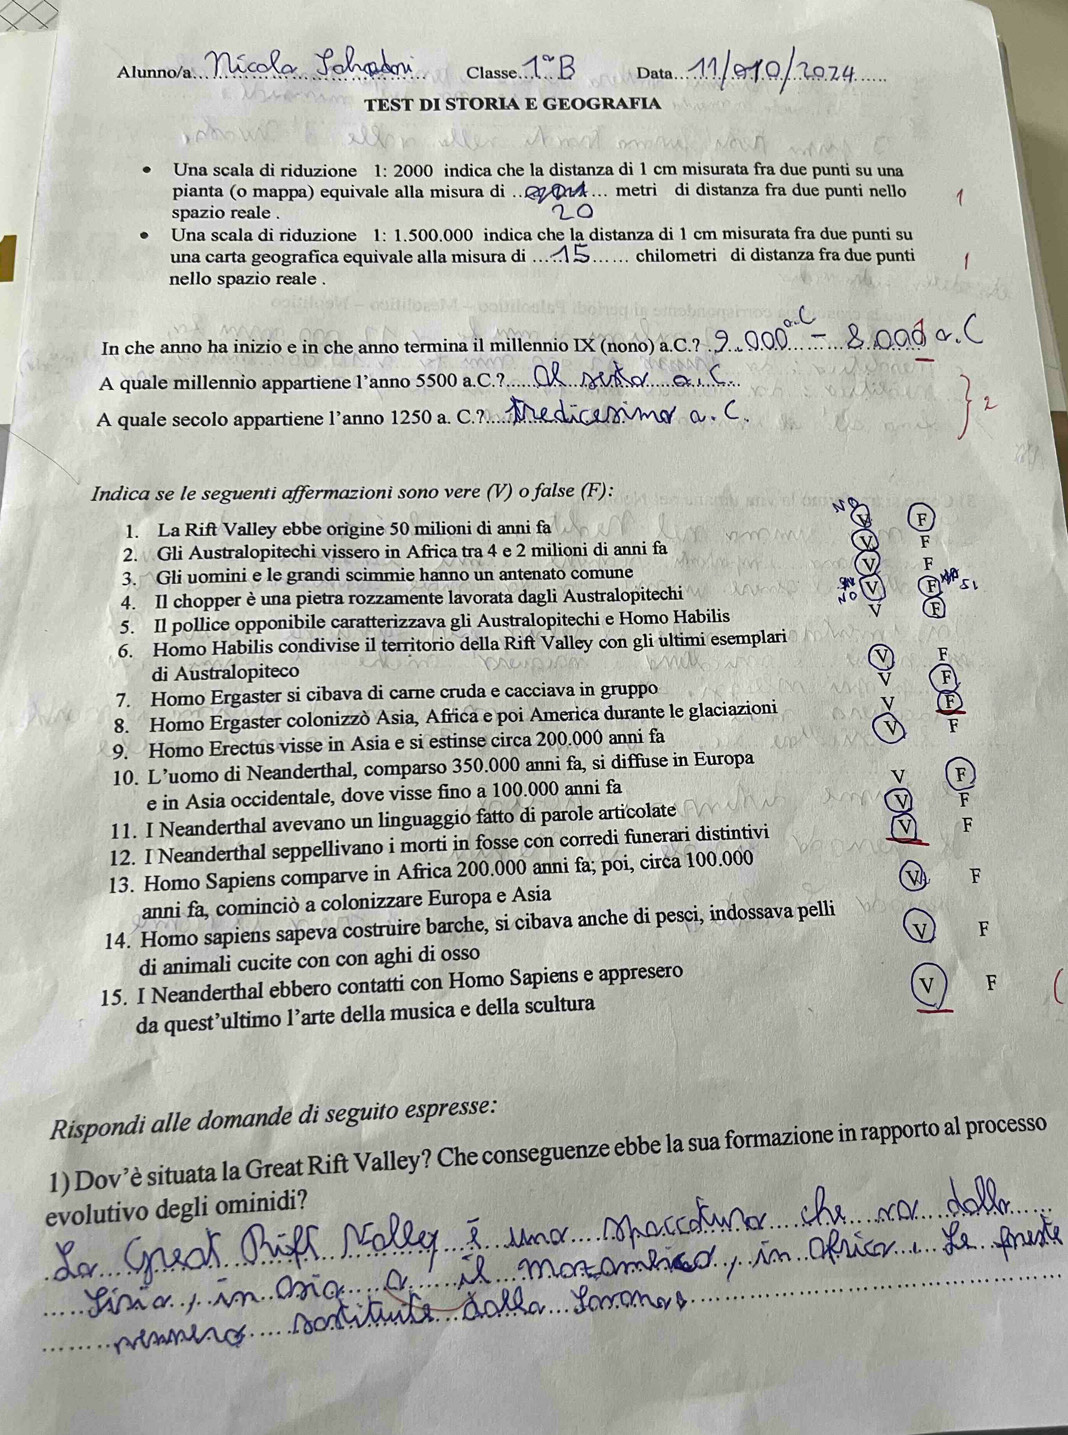 Alunno/a...Nicola ... Classe...1°B Data...11/010/2024......
TEST DI STORIA E GEOGRAFIA
• Una scala di riduzione 1: 2000 indica che la distanza di 1 cm misurata fra due punti su una
pianta (o mappa) equivale alla misura di ... metri di distanza fra due punti nello 1
spazio reale . 20
• Una scala di riduzione 1: 1.500.000 indica che la distanza di 1 cm misurata fra due punti su
una carta geografica equivale alla misura di ....15...... chilometri di distanza fra due punti 1
nello spazio reale .
In che anno ha inizio e in che anno termina il millennio IX (nono) a.C.? .9.000 a.C - 8.000 a.C
A quale millennio appartiene l'anno 5500 a.C.?.....Al sesto a.C...
A quale secolo appartiene l'anno 1250 a. C.?.....tredicesimo a.C. } 2
Indica se le seguenti affermazioni sono vere (V) o false (F):
1. La Rift Valley ebbe origine 50 milioni di anni fa NO V F
2. Gli Australopitechi vissero in Africa tra 4 e 2 milioni di anni fa V F
3. Gli uomini e le grandi scimmie hanno un antenato comune V F
4. Il chopper è una pietra rozzamente lavorata dagli Australopitechi NO V F SI
5. Il pollice opponibile caratterizzava gli Australopitechi e Homo Habilis V F
6. Homo Habilis condivise il territorio della Rift Valley con gli ultimi esemplari
di Australopiteco V F
7. Homo Ergaster si cibava di carne cruda e cacciava in gruppo V F
8. Homo Ergaster colonizzò Asia, Africa e poi America durante le glaciazioni V F
9. Homo Erectus visse in Asia e si estinse circa 200.000 anni fa V F
10. L'uomo di Neanderthal, comparso 350.000 anni fa, si diffuse in Europa
e in Asia occidentale, dove visse fino a 100.000 anni fa V F
11. I Neanderthal avevano un linguaggio fatto di parole articolate V F
12. I Neanderthal seppellivano i morti in fosse con corredi funerari distintivi V F
13. Homo Sapiens comparve in Africa 200.000 anni fa; poi, circa 100.000
anni fa, cominciò a colonizzare Europa e Asia V F
14. Homo sapiens sapeva costruire barche, si cibava anche di pesci, indossava pelli
di animali cucite con con aghi di osso V F
15. I Neanderthal ebbero contatti con Homo Sapiens e appresero
da quest'ultimo l'arte della musica e della scultura V F
Rispondi alle domande di seguito espresse:
1) Dov'è situata la Great Rift Valley? Che conseguenze ebbe la sua formazione in rapporto al processo
evolutivo degli ominidi?
La Great Rift Valley è una spaccatura che va dalla
Siria, in Asia a il Mozambico, in Africa. Le foreste
vennero sostituite dalla savana.